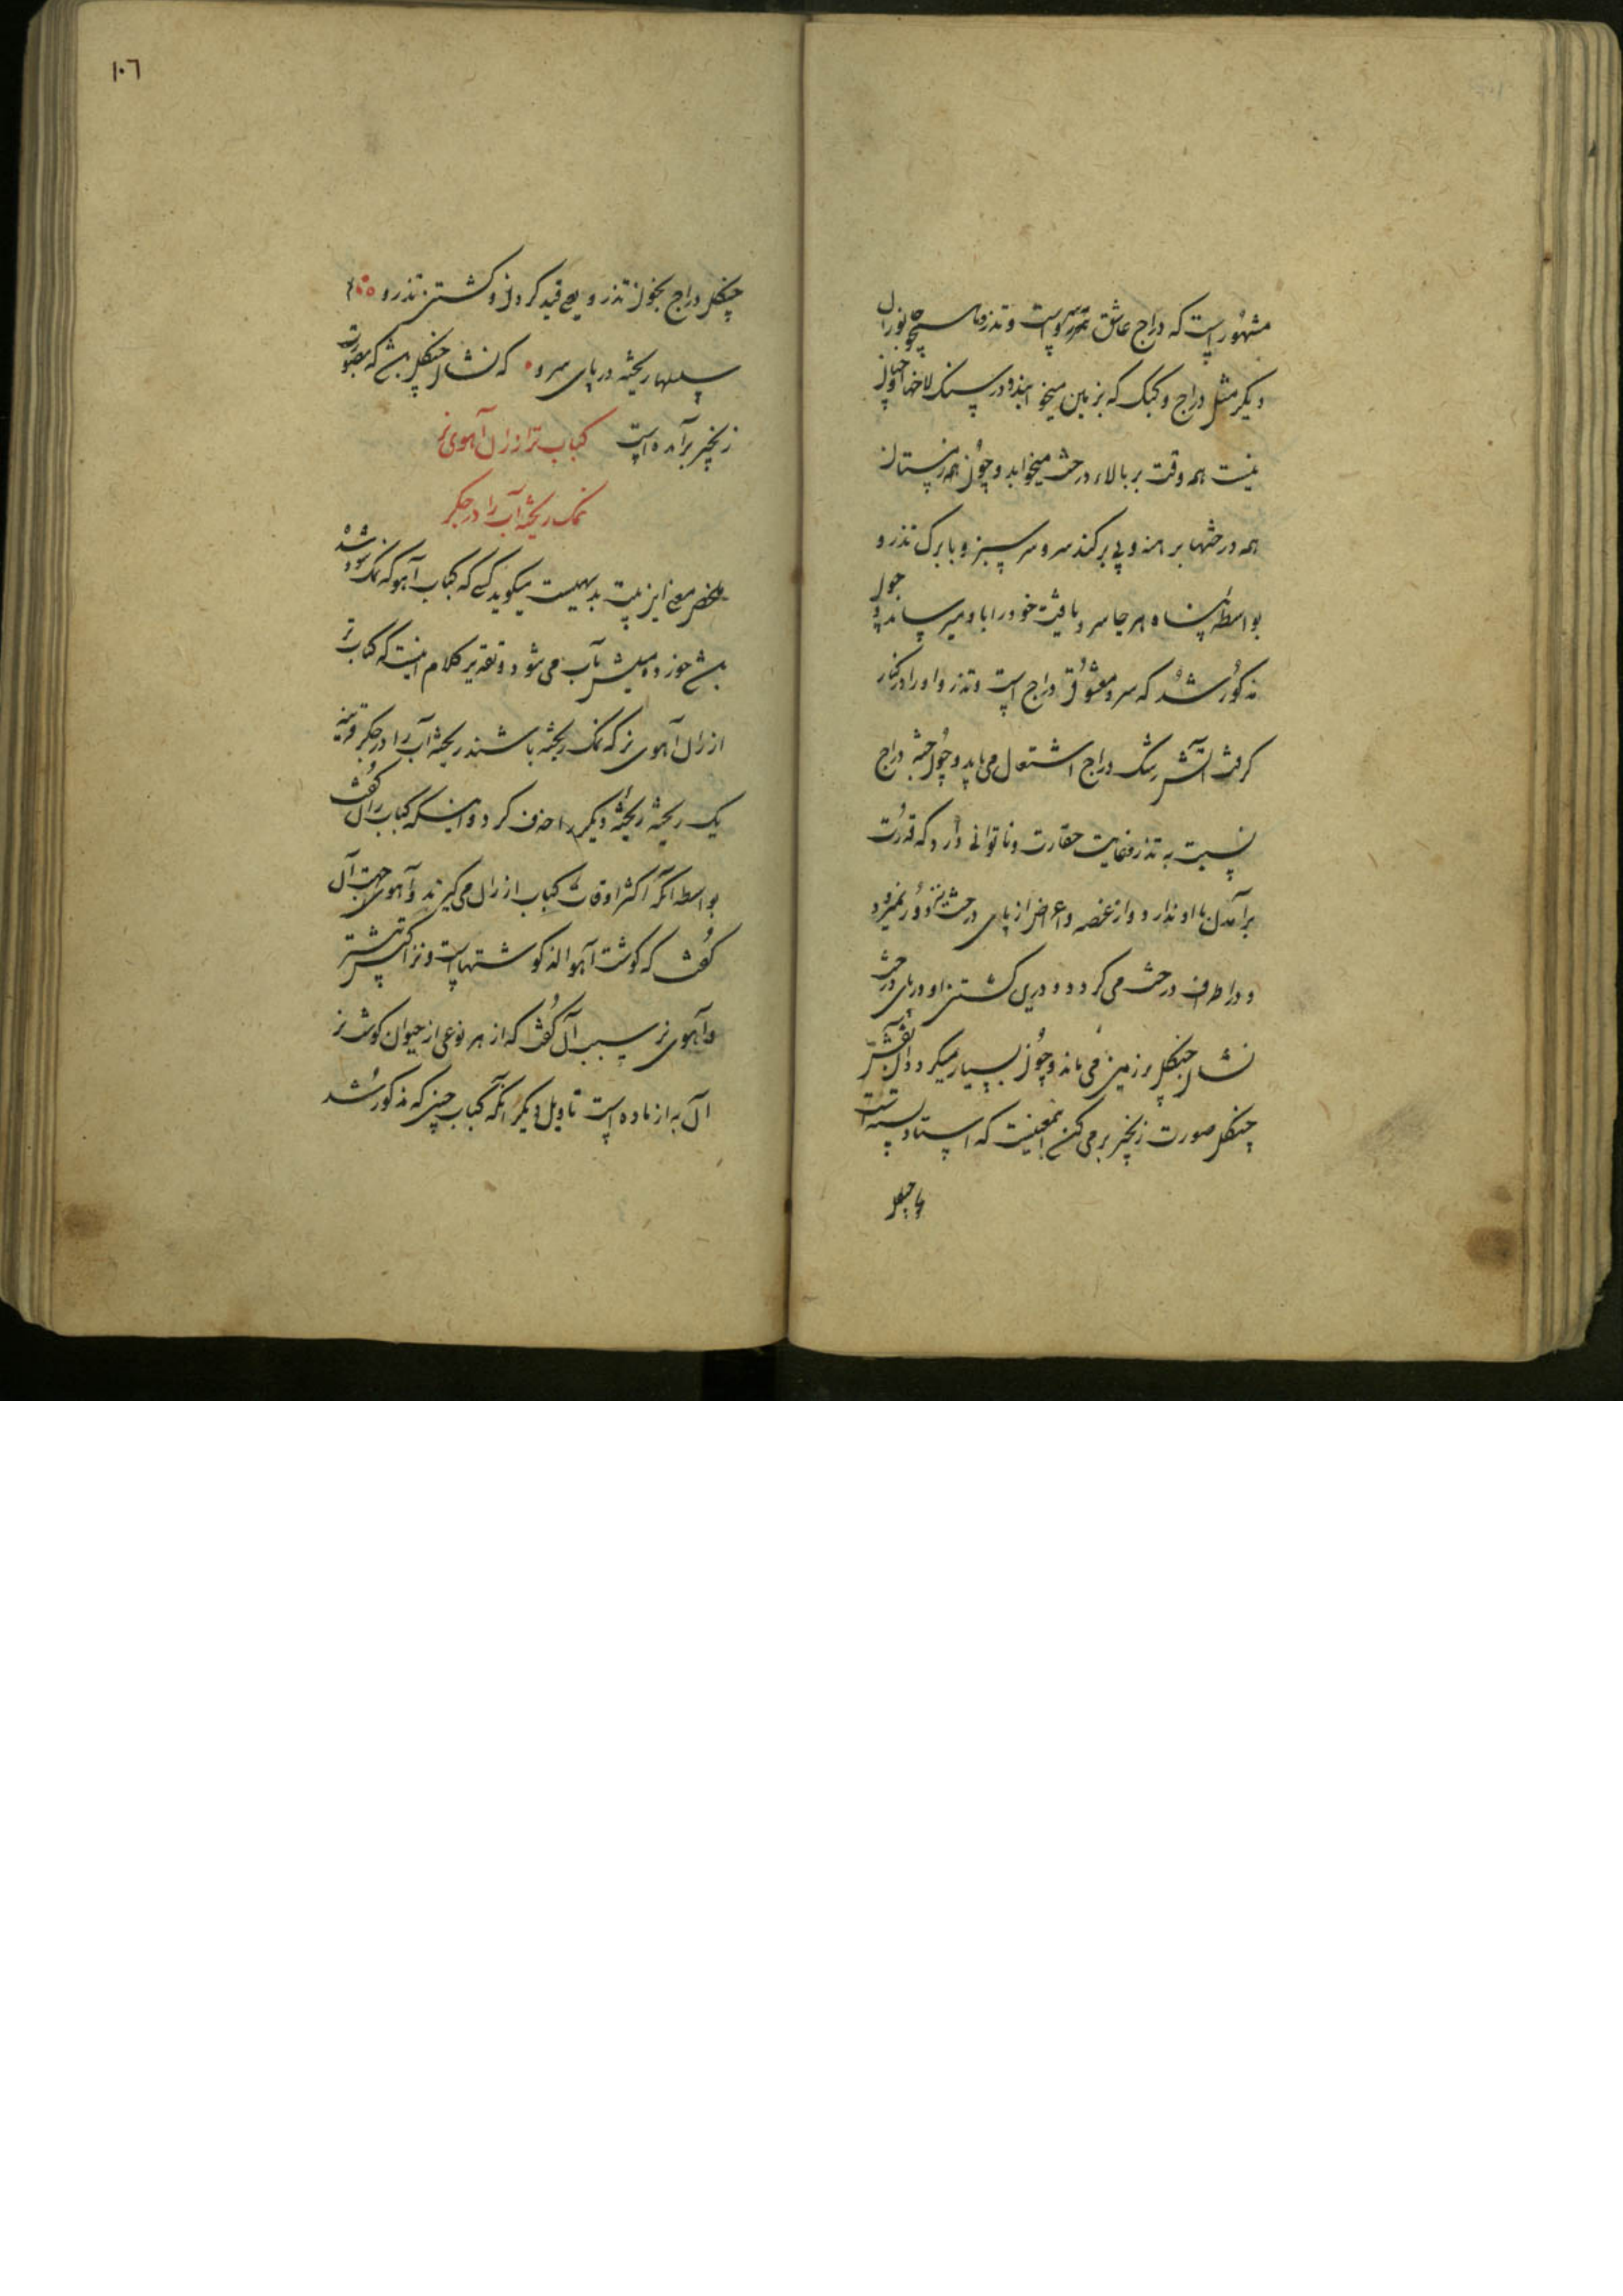 مشهور است که دراج عاشق سرو است و تذرو ما سیچو نوران
دیگر مثل دراج و کبک که بزمین میخوابند و در سنک لاخها و خیابان
نیست همه وقت بر بالاء درخت میخوابد و چون همه زمستان
همه درختها برهنه و بی برکند سرو سر سبز و با برک تذرو
بواسطه پناه هر جا سرو یافت خود را باو میرساند و چون
مذکور شد که سرو معشوق دراج است و تذرو او را در کنار
کرفت آتش رشک دراج اشتعال می یابد و چون جثه دراج
نسبت به تذرو غایت حقارت و ناتوانی دارد که قدرت
برآمدن با او ندارد و از غصه و اعراض از پای درخت نیز دور نمیرود
و در اطراف درخت می کردد و درین کشتن او در پای درخت
نشان چنکل بر زمین می ماند و چون بسیار میکردد آن نقش
چنکل صورت زنجیر بر می کند اینمعنیست که استاد بسته است
پا چنکل
١٠٦
چنکل دراج بخون تذرو یعنی قید کردن و کشتن تذرو
سلسلها ریخته در پای سرو که نشان چنکلهاش که بصورت
زنجیر برآمده است کباب تر از ران آهوی نر
نمک ریخته آب را در جکر
مختصر معنی این بیت بدیهیست میکوید که کباب آهو که نمک سود شده
نمش خورده میلش بآب می شود و تقدیر کلام اینست که کباب تر
از ران آهوی نر که نمک ریخته باشند ریخته آب را در جکر و قرینه
یک ریخته ریخته دیکر را حذف کرد و اینکه کباب ران کفت
بواسطه آنکه اکثر اوقات کباب از ران می کیرند و آهو جهت آن
کفت که کوشت آهو الذ کوشتهاست و نزاکتش بیشتر
و آهوی نر سبب آن کفت که از هر نوعی از حیوان کوشت نر
آن به از ماده است تاویل دیکر آنکه کباب چنین که مذکور شد